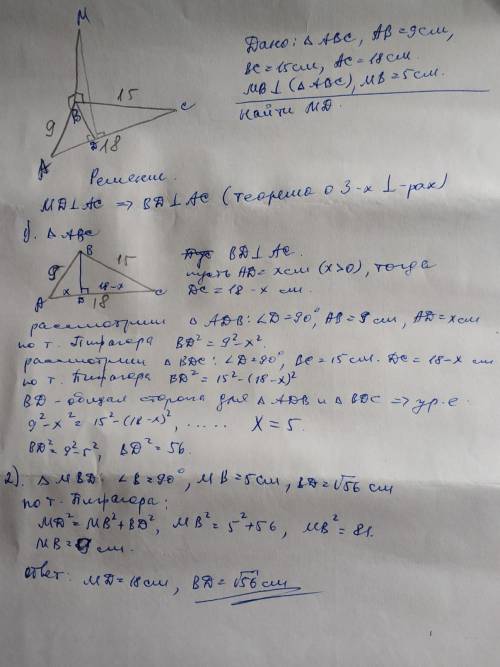 M
15
9
B
C
D
18
A
Дано: △ABC, AB=9см,
BC=15см, AC=18см.
MB⊥(△ABC), MB=5см.
Найти MD.
Решение.
MD⊥AC => BD⊥AC (теорема о 3-х ⊥-рах)
1). △ABC
B
9
15
A
x
D
18-x
C
18
BD⊥AC.
пусть AD=xсм (x>0), тогда
DC=18-x см.
рассмотрим △ADB: ∠D=90°, AB=9см, AD=xсм
по т. Пифагора BD²=9²-x².
рассмотрим △BDC: ∠D=90°, BC=15см. DC=18-x см
по т. Пифагора BD²=15²-(18-x)²
BD - общая сторона для △ADB и △BDC => ур-е.
9²-x²=15²-(18-x)², ..... X=5.
BD²=9²-5², BD²=56.
2). △MBD: ∠B=90°, MB=5см, BD=√56 см
по т. Пифагора:
MD²=MB²+BD², MB²=5²+56, MB²=81.
MB=9см.
ответ: MD=18см, BD=√56см